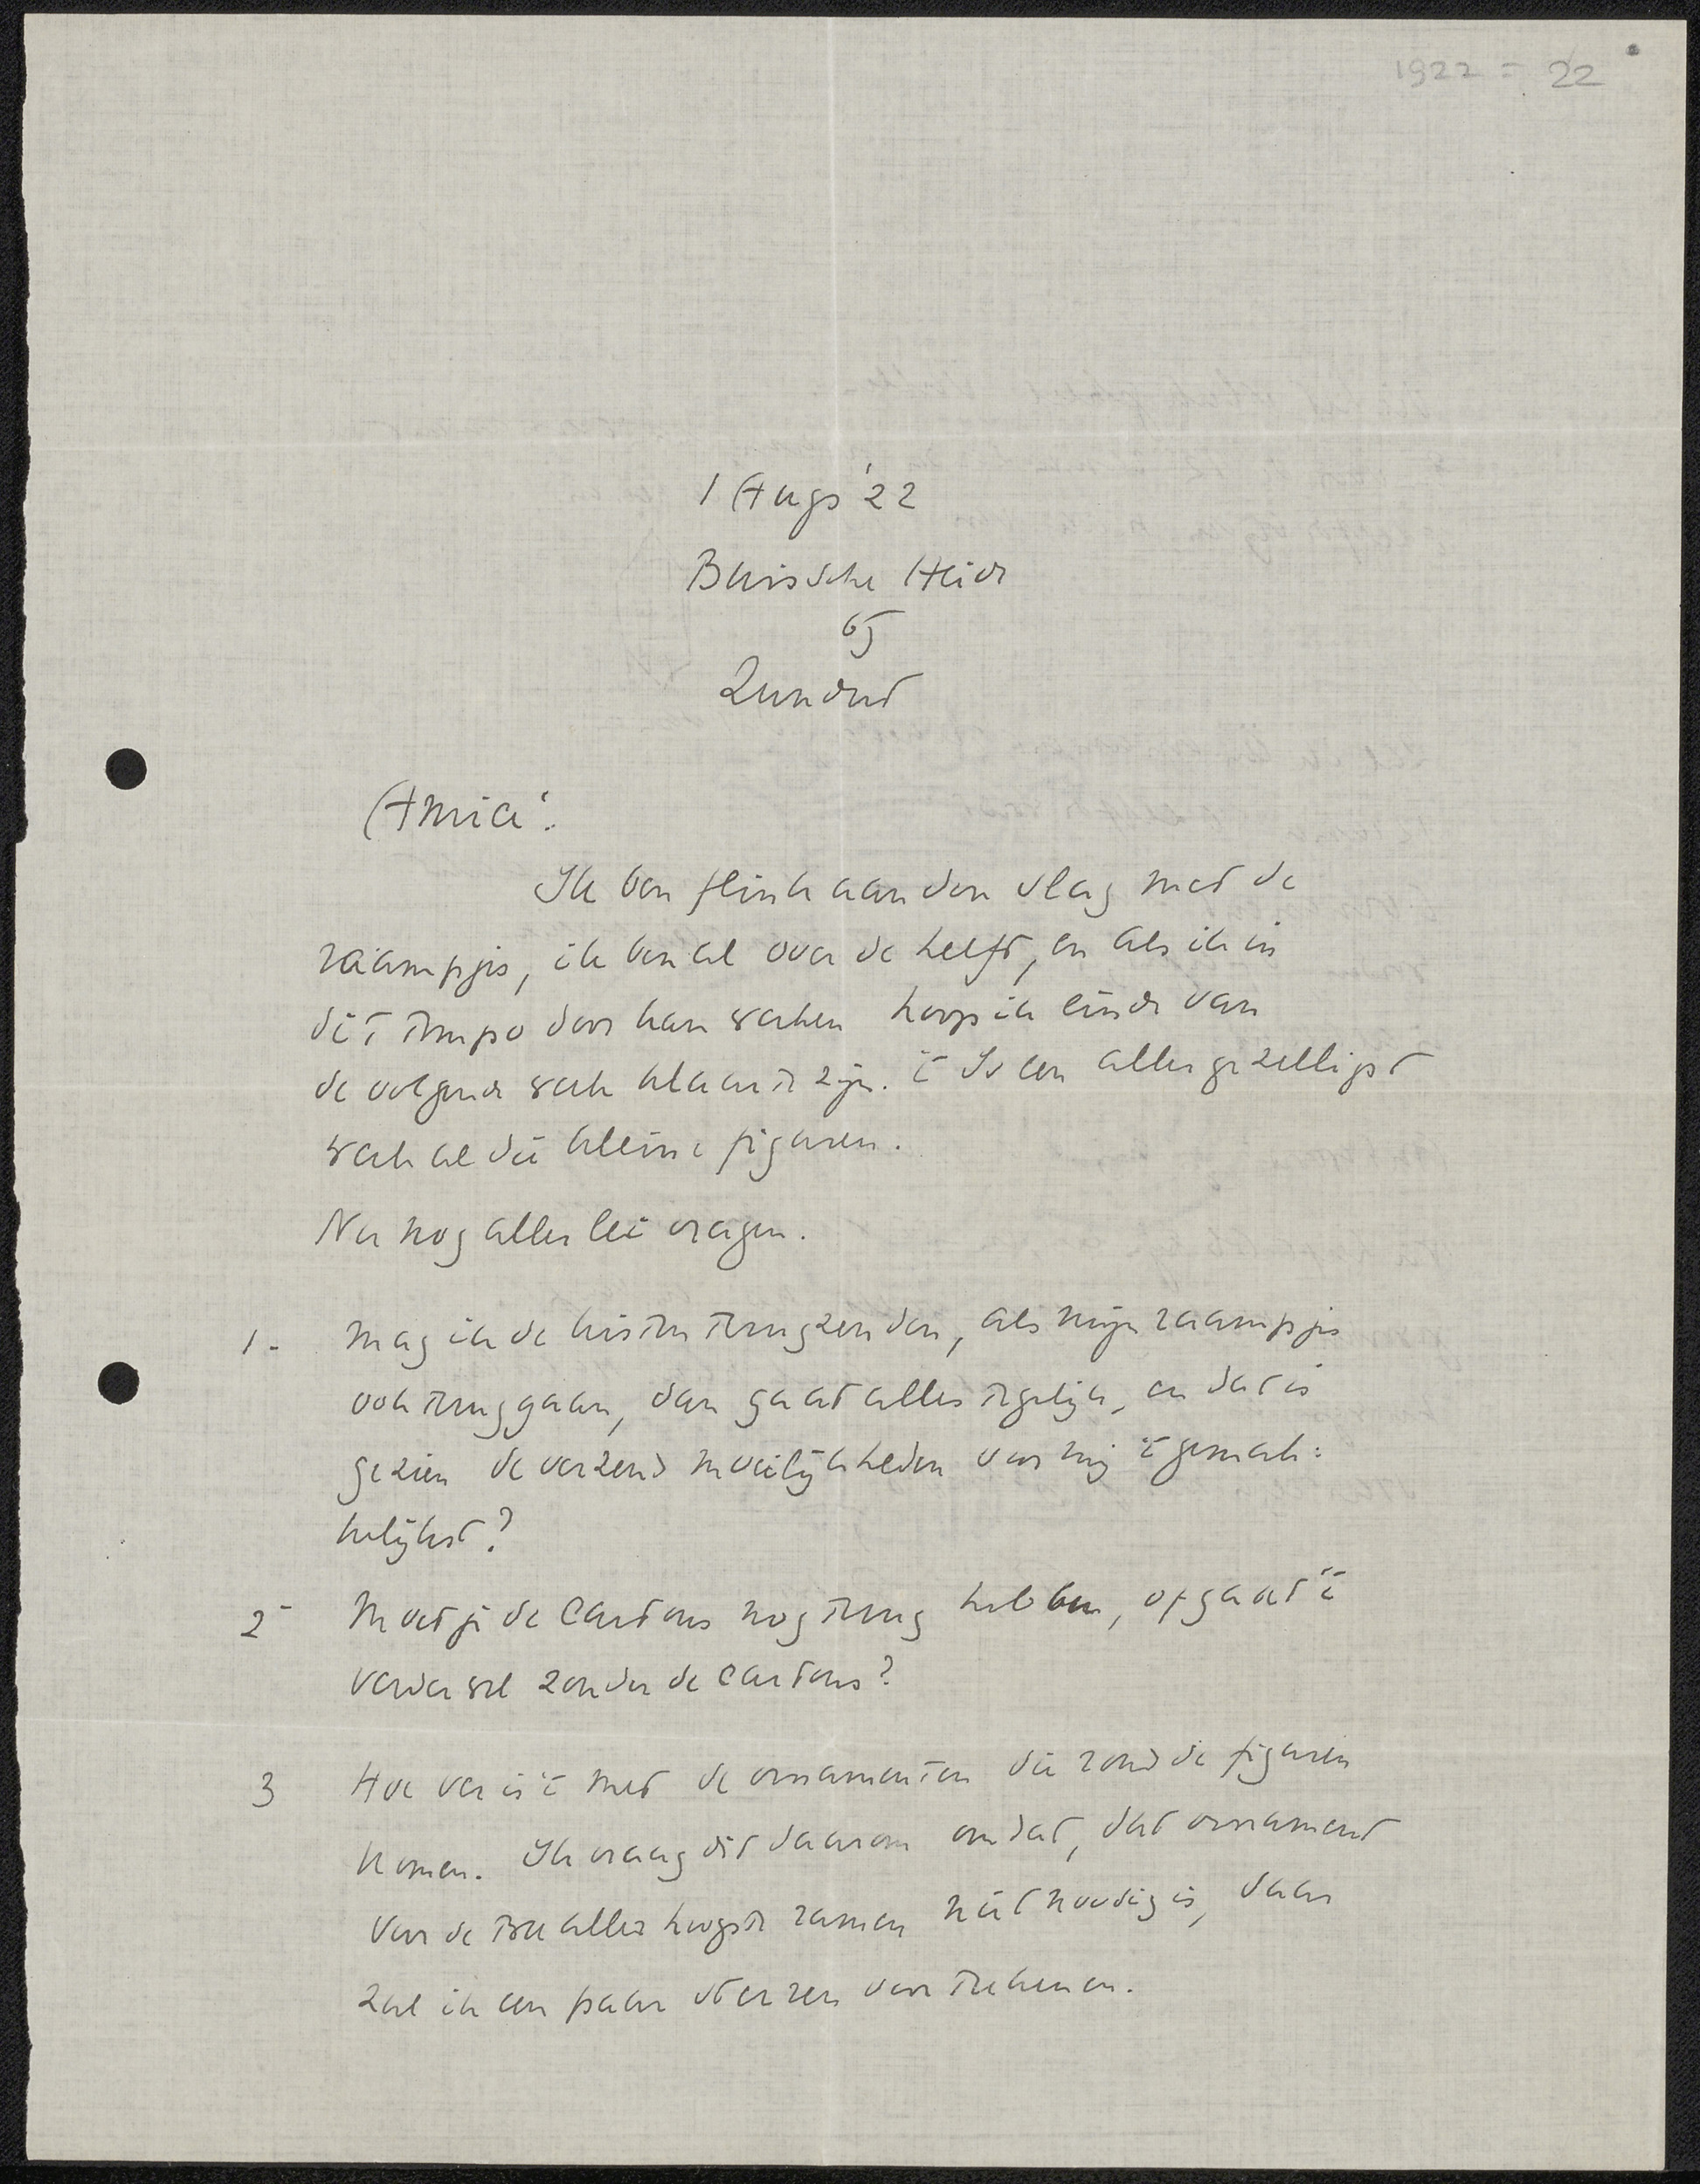 1922 = 22
1 Augs '22
Buissche Heide
bij
Zundert
Amice!
Ik ben flink aan den slag met de
raampjes, ik ben al over de helft, en als ik in
dit tempo door kan werken hoop ik einde van
de volgende week klaar te zijn. 't Is een allergezelligst
werk al die kleine figuren.
Nu nog allerlei vragen.
1. Mag ik de kisten terugzenden, als mijn raampjes
ook terug gaan, dan gaat alles tegelijk, en dat is
gezien de verzend moeilijkheden voor mij 't gemak:
kelijkst?
2 Moet je de cartons nog terug hebben, of gaat 't
verder wel zonder de cartons?
3 Hoe ver is 't met de ornamenten die rond de figuren
komen. Ik vraag dit daarom omdat, dat ornament
voor de twee allerhoogste ramen niet noodig is, daar
zal ik een paar sterren voor teekenen.